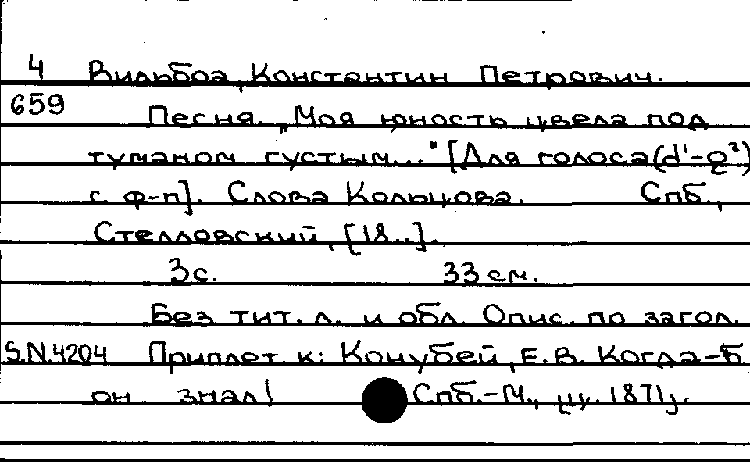 4 Вильбоа, Константин Петрович.
659 Песня. „Моя юность цвела под
туманом густым..." [Для голоса (d¹-g²)
с ф-п]. Слова Кольцова. Спб.,
Стелловский, [18..].
3 с. 33 см.
Без тит. л. и обл. Опис. по загол.
S.N.4204 Приплет. к: Кочубей, Е.В. Когда-б
он знал! Спб.-М., ц. 1871 г.